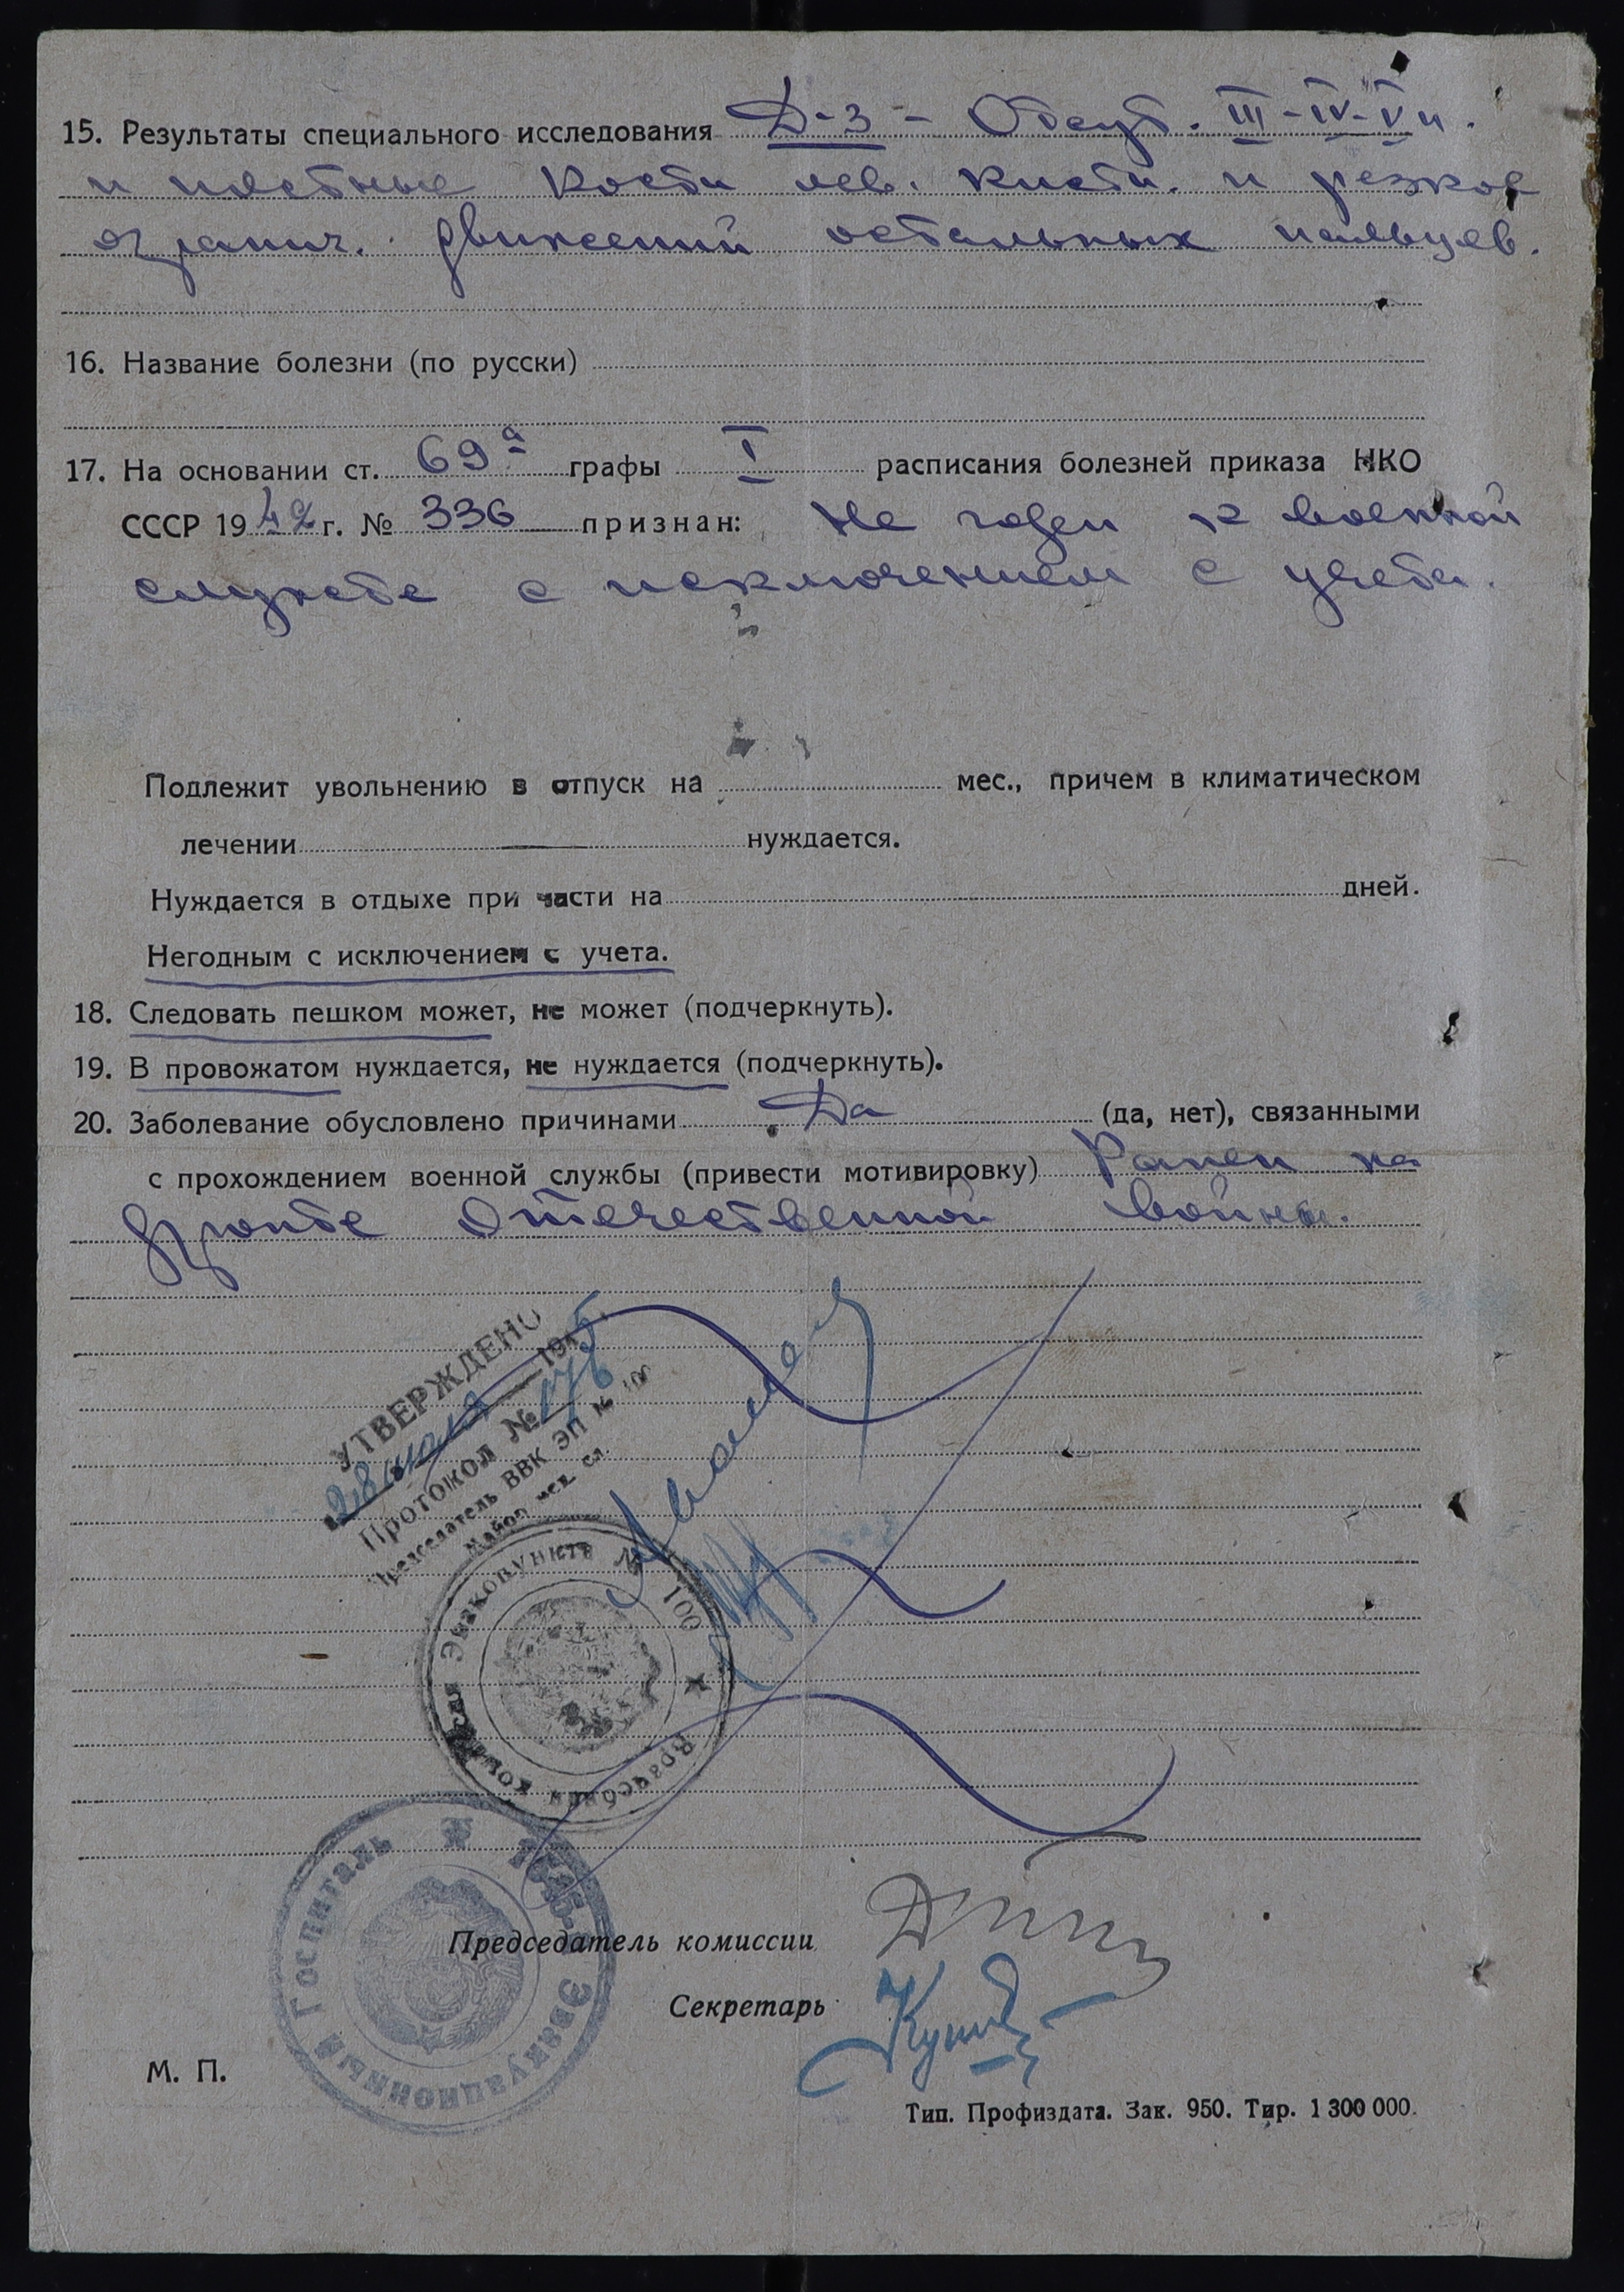 15. Результаты специального исследования Д-з - Отсут. III-IV-V п.
и пястные кости лев. кисти. и резкое
огранич. движений остальных пальцев.
16. Название болезни (по русски)
17. На основании ст. 69а графы I расписания болезней приказа НКО
СССР 1942 г. № 336 признан: Не годен к военной
службе с исключением с учета.
Подлежит увольнению в отпуск на мес., причем в климатическом
лечении — нуждается.
Нуждается в отдыхе при части на дней.
Негодным с исключением с учета.
18. Следовать пешком может, не может (подчеркнуть).
19. В провожатом нуждается, не нуждается (подчеркнуть).
20. Заболевание обусловлено причинами Да (да, нет), связанными
с прохождением военной службы (привести мотивировку) Ранен на
фронте Отечественной войны.
УТВЕРЖДЕНО
28 1945
Протокол № 176
Председатель ВВК ЭП № 100
Майор мед. сл.
Врачебная комиссия Эвакопункта № 100
Эвакуационный Госпиталь
Председатель комиссии
Секретарь
М. П.
Тип. Профиздата. Зак. 950. Тир. 1 300 000.